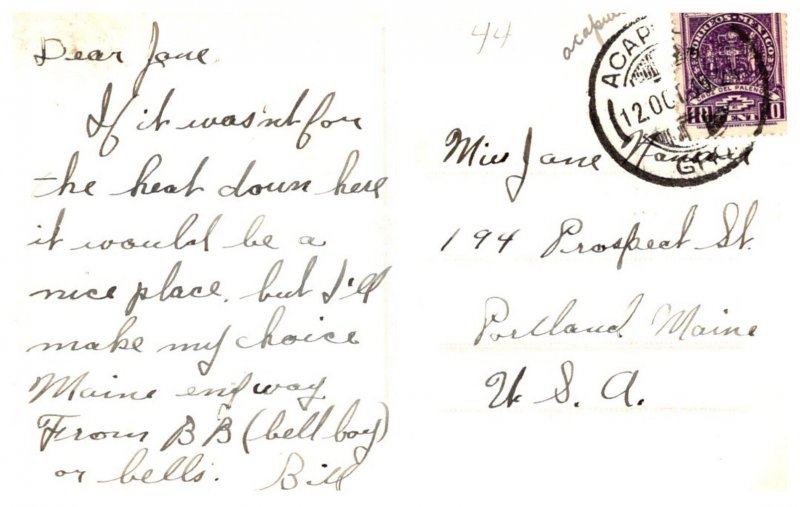 Dear Jane
If it wasnt for
the heat down here
it would be a
nice place. but I'll
make my choice
Maine enyway
From BB (bell boy)
or bells. Bill
44
acapul
CORREOS MEXICO
ACAP
12.OCT
Miss Jane
194 Prospect St.
Portland Maine
U. S. A.